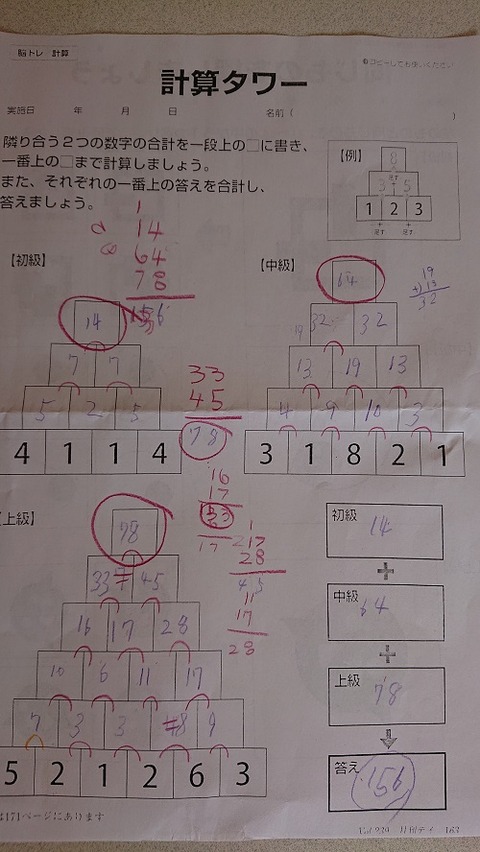 脳トレ 計算
●コピーしてお使いください
計算タワー
実施日 年 月 日 名前( )
隣り合う2つの数字の合計を一段上の□に書き、
一番上の□まで計算しましょう。
また、それぞれの一番上の答えを合計し、
答えましょう。
【例】
8
3 5
1 2 3
+ +
足す 足す
1
14
64
78
156
【初級】
14
7 7
5 2 5
4 1 1 4
【中級】
64
19
+13
32
19 32 32
13 19 13
4 9 10 3
3 1 8 2 1
33
45
78
16
17
33
17
1
17
28
45
11
17
28
【上級】
78
33 45
16 17 28
10 6 11 17
7 3 3 8 9
5 2 1 2 6 3
初級
14
+
中級
64
+
上級
78
答え
156
は171ページにあります
Vol.239 月刊デイ 163